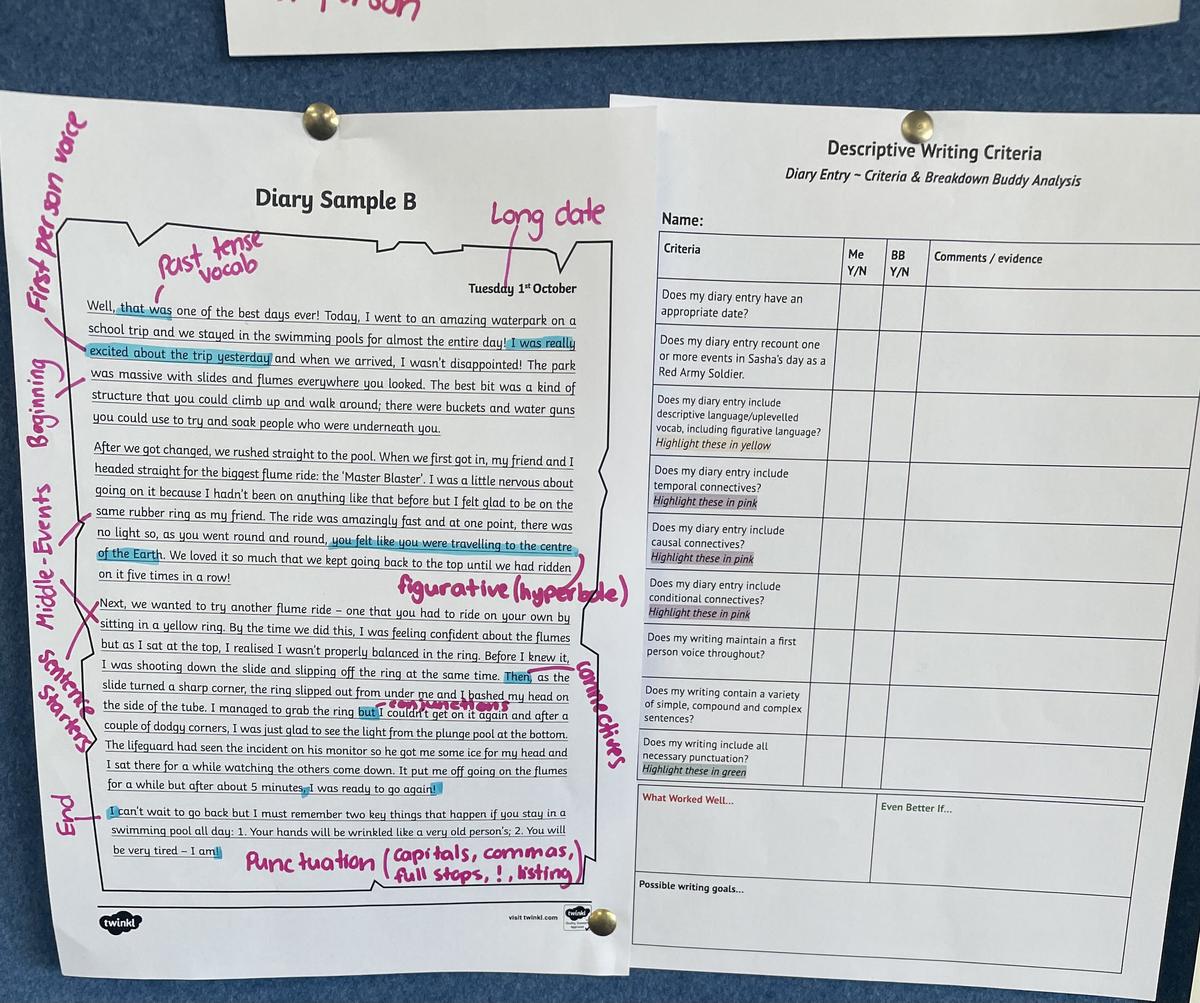 person
First person voice
Beginning
Middle-Events
Sentence
Starters
End
Diary Sample B
Long date
Past tense
vocab
Tuesday 1st October
Well, that was one of the best days ever! Today, I went to an amazing waterpark on a
school trip and we stayed in the swimming pools for almost the entire day! I was really
excited about the trip yesterday and when we arrived, I wasn't disappointed! The park
was massive with slides and flumes everywhere you looked. The best bit was a kind of
structure that you could climb up and walk around; there were buckets and water guns
you could use to try and soak people who were underneath you.
After we got changed, we rushed straight to the pool. When we first got in, my friend and I
headed straight for the biggest flume ride: the 'Master Blaster'. I was a little nervous about
going on it because I hadn't been on anything like that before but I felt glad to be on the
same rubber ring as my friend. The ride was amazingly fast and at one point, there was
no light so, as you went round and round, you felt like you were travelling to the centre
of the Earth. We loved it so much that we kept going back to the top until we had ridden
on it five times in a row!
figurative (hyperbole)
Next, we wanted to try another flume ride – one that you had to ride on your own by
sitting in a yellow ring. By the time we did this, I was feeling confident about the flumes
but as I sat at the top, I realised I wasn't properly balanced in the ring. Before I knew it,
I was shooting down the slide and slipping off the ring at the same time. Then, as the
slide turned a sharp corner, the ring slipped out from under me and I bashed my head on
the side of the tube. I managed to grab the ring but I couldn't get on it again and after a
couple of dodgy corners, I was just glad to see the light from the plunge pool at the bottom.
The lifeguard had seen the incident on his monitor so he got me some ice for my head and
I sat there for a while watching the others come down. It put me off going on the flumes
for a while but after about 5 minutes, I was ready to go again!
conjunctions
connectives
I can't wait to go back but I must remember two key things that happen if you stay in a
swimming pool all day: 1. Your hands will be wrinkled like a very old person's; 2. You will
be very tired – I am!
Punctuation (capitals, commas,
full stops, !, listing)
twinkl
visit twinkl.com
twinkl
Descriptive Writing Criteria
Diary Entry ~ Criteria & Breakdown Buddy Analysis
Name:
Criteria
Me
Y/N
BB
Y/N
Comments / evidence
Does my diary entry have an
appropriate date?
Does my diary entry recount one
or more events in Sasha's day as a
Red Army Soldier.
Does my diary entry include
descriptive language/uplevelled
vocab, including figurative language?
Highlight these in yellow
Does my diary entry include
temporal connectives?
Highlight these in pink
Does my diary entry include
causal connectives?
Highlight these in pink
Does my diary entry include
conditional connectives?
Highlight these in pink
Does my writing maintain a first
person voice throughout?
Does my writing contain a variety
of simple, compound and complex
sentences?
Does my writing include all
necessary punctuation?
Highlight these in green
What Worked Well...
Even Better If...
Possible writing goals...